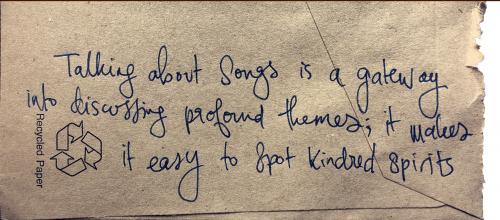 Talking about Songs is a gateway
into discussing profound themes; it makes
it easy to spot kindred spirits
Recycled Paper